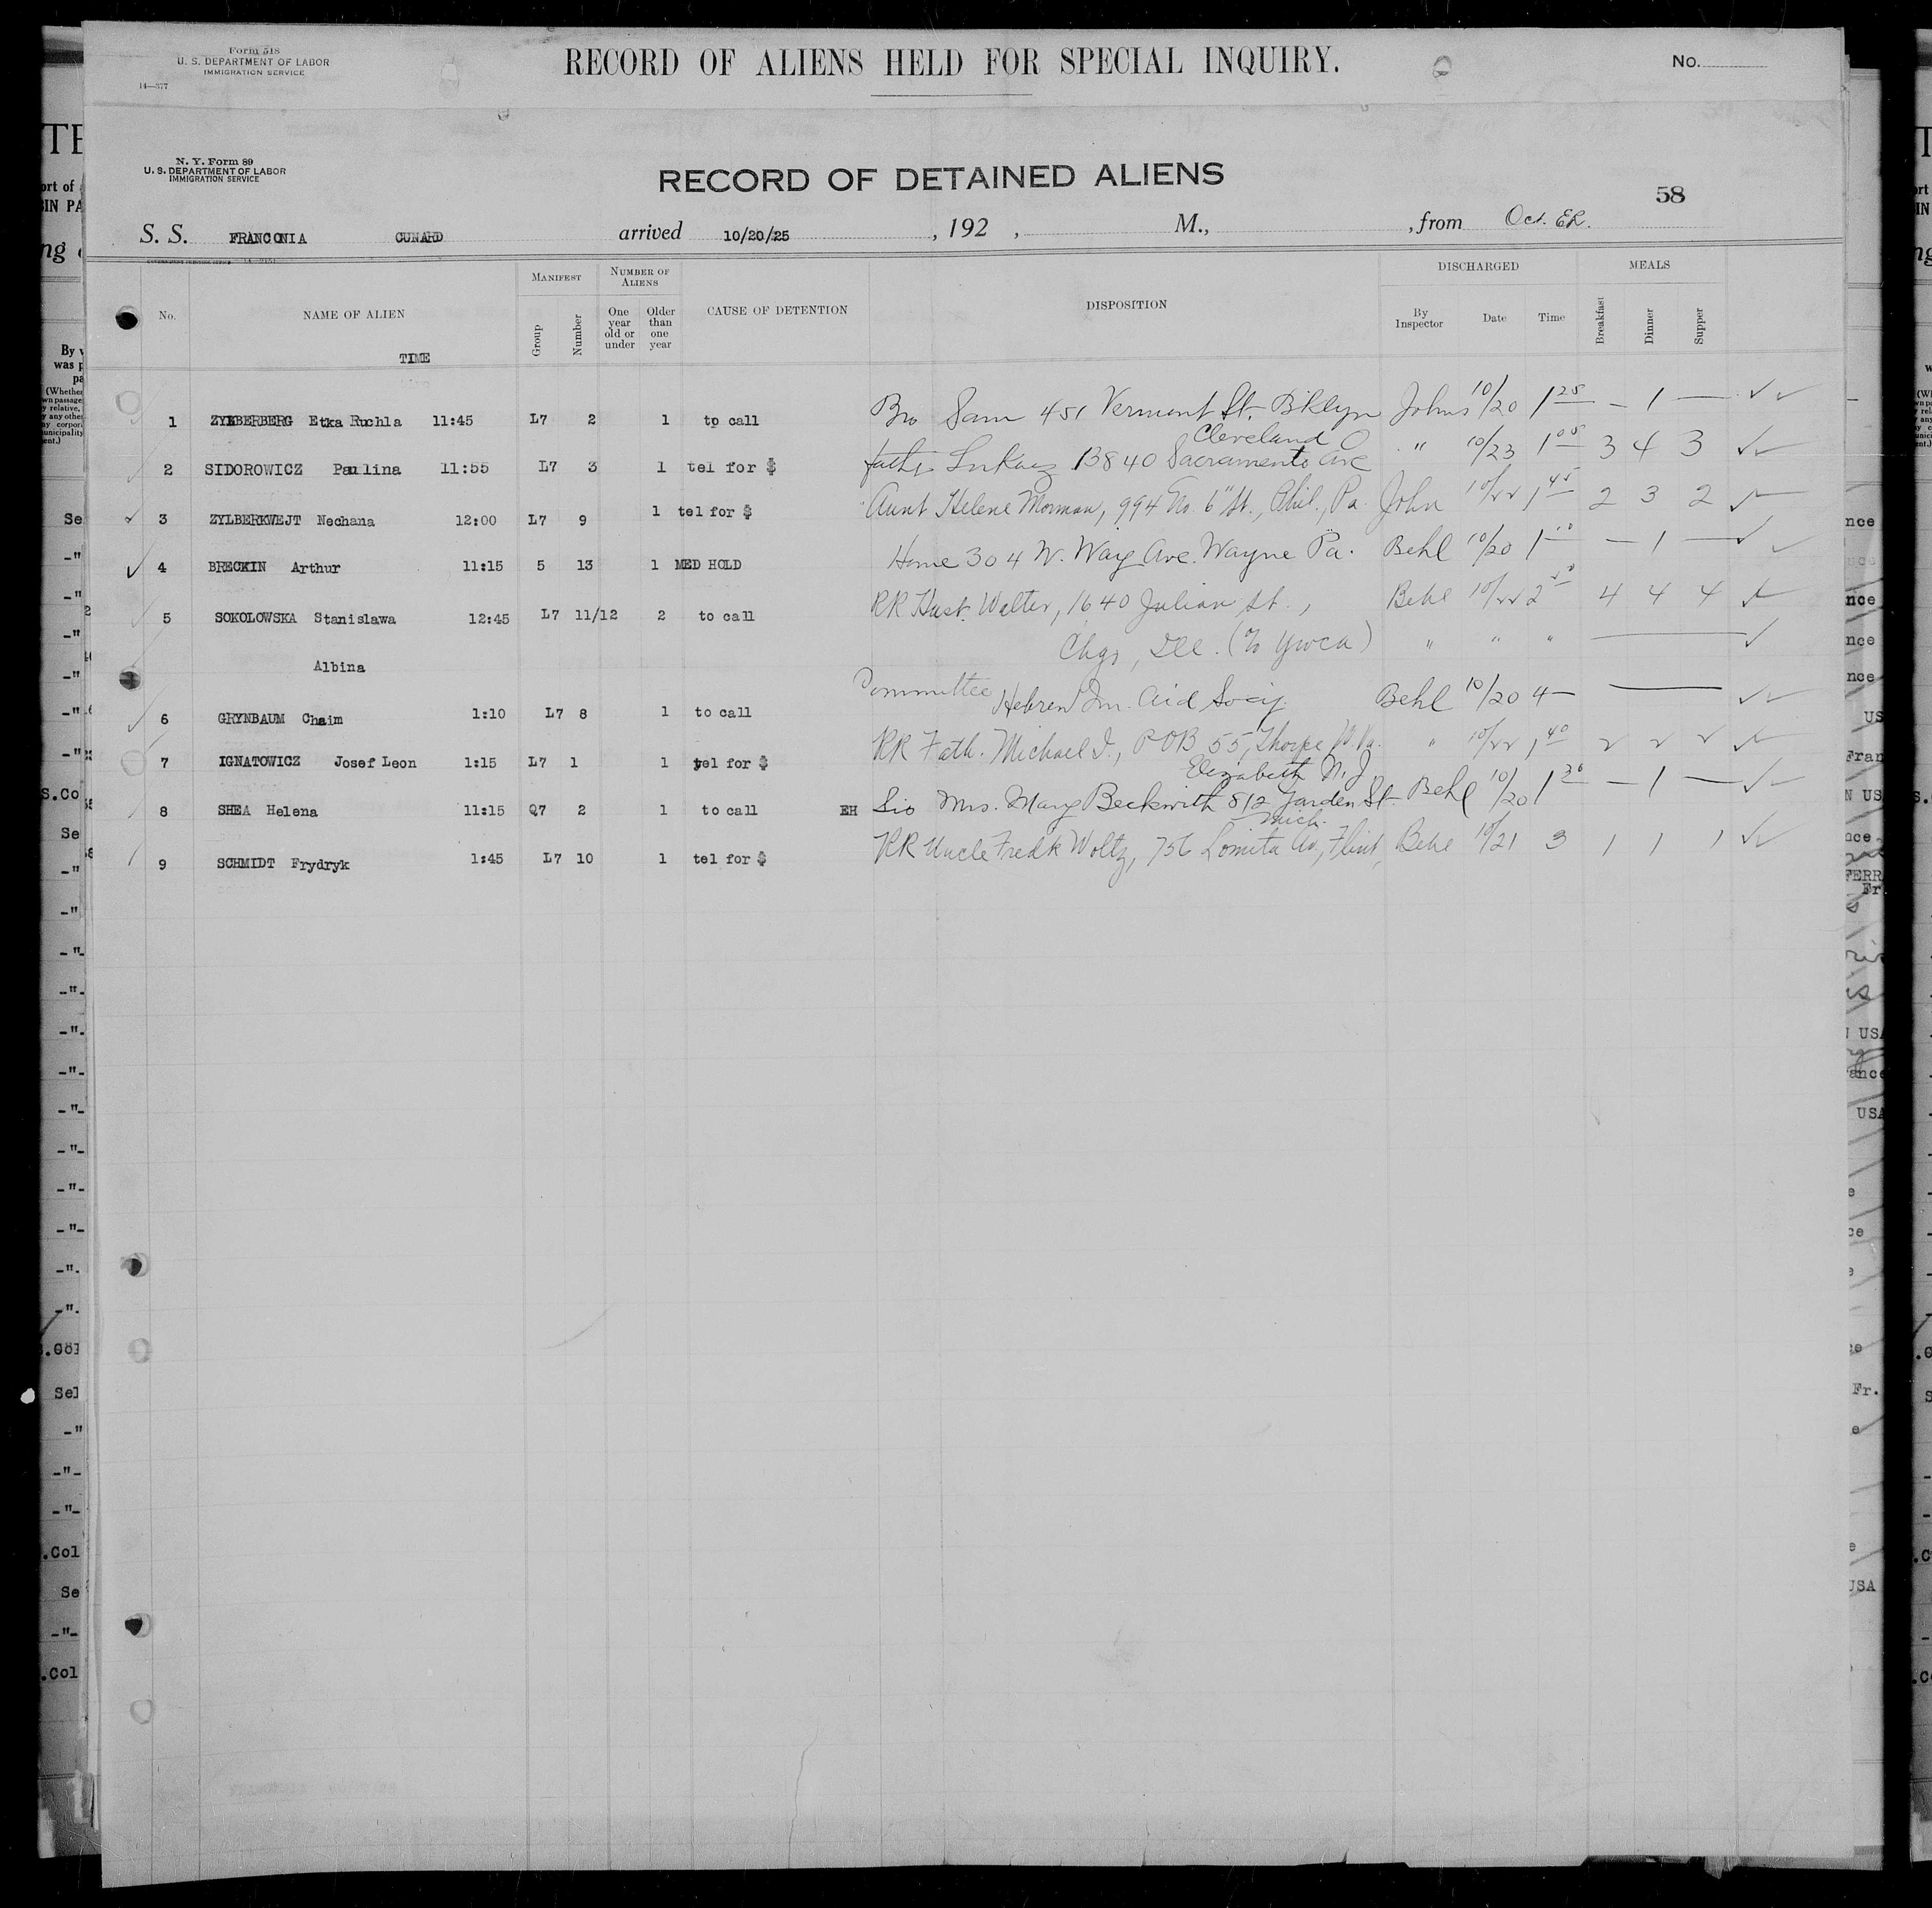 Form 518
U. S. DEPARTMENT OF LABOR
IMMIGRATION SERVICE
14—377
RECORD OF ALIENS HELD FOR SPECIAL INQUIRY.
No.
N. Y. Form 89
U. S. DEPARTMENT OF LABOR
IMMIGRATION SERVICE
RECORD OF DETAINED ALIENS
58
S. S. FRANCONIA CUNARD arrived 10/20/25 , 192 , M., , from Oct. ER.
No. NAME OF ALIEN TIME MANIFEST Group Number NUMBER OF ALIENS One year old or under Older than one year CAUSE OF DETENTION DISPOSITION DISCHARGED By Inspector Date Time MEALS Breakfast Dinner Supper
1 ZYLBERBERG Etka Ruchla 11:45 L7 2 1 to call Bro Sam 451 Vermont St. Bklyn Johns 10/20 1 25 — 1 —
Cleveland O
2 SIDOROWICZ Paulina 11:55 L7 3 1 tel for $ father Lukasz 13840 Sacramento Ave " 10/23 1 05 3 4 3
3 ZYLBERKWEJT Nechana 12:00 L7 9 1 tel for $ Aunt Helene Morman, 994 No. 6" St., Phil., Pa. John 10/22 1 45 2 3 2
4 BRECKIN Arthur 11:15 5 13 1 MED HOLD Home 304 W. Way Ave. Wayne Pa. Behl 10/20 1 — 1 —
5 SOKOLOWSKA Stanislawa 12:45 L7 11/12 2 to call RR Husb. Walter, 1640 Julian St., Behl 10/22 2 4 4 4
Albina Chgo, Ill. (% Ywca) " " "
6 GRYNBAUM Chaim 1:10 L7 8 1 to call Committee Hebrew Im. Aid Socy. Behl 10/20 4—
7 IGNATOWICZ Josef Leon 1:15 L7 1 1 tel for $ RR Fath. Michael I., POB 55, Thorpe W. Va. " 10/22 1 40 2 2 2
Elizabeth N. J
8 SHEA Helena 11:15 Q7 2 1 to call EH Sis Mrs. Mary Beckwith 812 Jarden St. Behl 10/20 1 30 — 1 —
Mich.
9 SCHMIDT Frydryk 1:45 L7 10 1 tel for $ RR Uncle Fredk Woltz, 756 Lomita Av., Flint, Behl 10/21 3 1 1 1